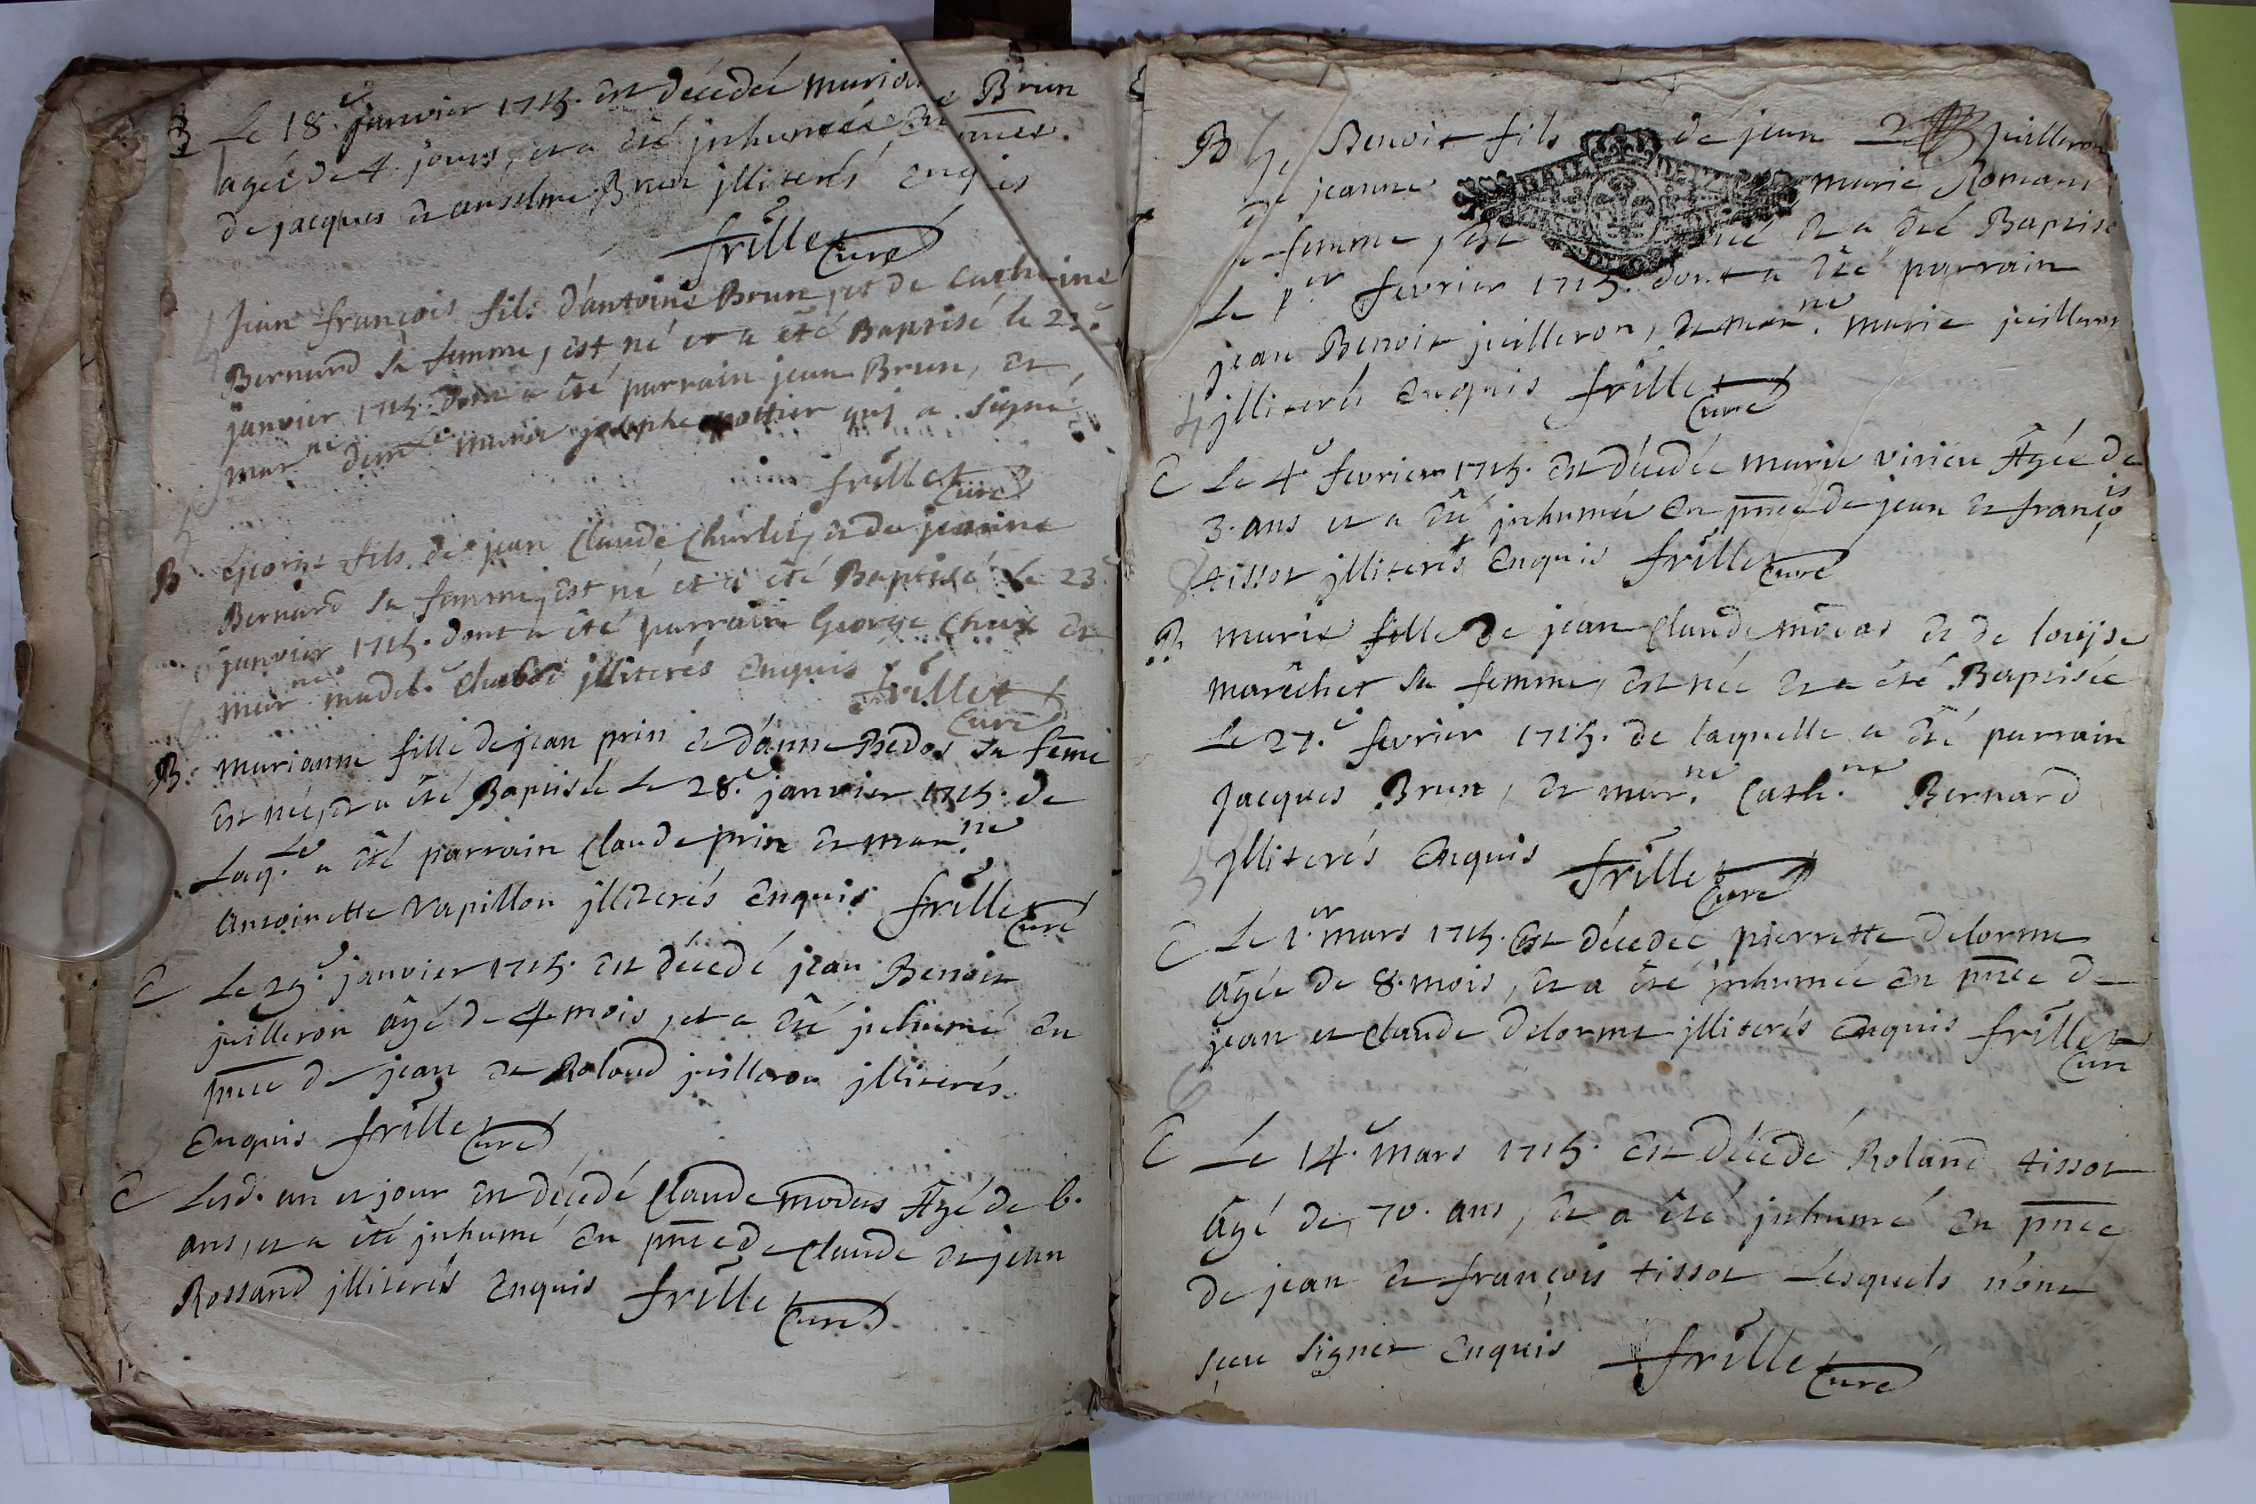 Le 18.e janvier 1715. est décédée marian Brun
agée de 4. jours, et a été jnhumée en pnces.
de jacques et anselme Brun jlliterés enquis
frillet Curé
Jean françois fils d'antoine Brun, et de Catherine
Bernard sa femme, est né et a été Baptisé le 22.e
janvier 1715. dont a été parrain jean Brun, et
mar.ne dem.lle marie josephe pottier quj a signé
frillet Curé
B George fils de jean Claude Charlet, et de jeanne
Bernard sa femme, est né et a été Baptisé le 23.e
janvier 1715. dont a été parrain George et
mar.ne madel.e jlliterés enquis
frillet Curé
B. marianne fille de jean prin et d'anne Bedos sa feme
est née, et a été Baptisée le 28.e janvier 1715. de
laq.le a été parrain Claude prin et mar.ne
antoinette vapillon jlliterés enquis frillet
Curé
C Le 29.e janvier 1715. est décedé jean Benoit
juilleron âgé de 4 mois, et a été jnhumé en
pnce de jean et Roland juilleron jlliterés.
enquis frillet Curé
C Lesd. an et jour est décedé Claude modas Agé de 6.
ans, et a été jnhumé en pnce de Claude et jean
Rossand jlliterés enquis frillet Curé
B Benoit fils de jean juilleron
et de jeanne marie Romans
sa femme, est né et a été Baptisé
Le p.er fevrier 1715. dont a été parrain
jean Benoit juilleron, et mar.ne marie juilleron
jlliterés enquis frillet Curé
C Le 4.e fevrier 1715. est décedée marie virieu Agée de
3. ans et a été jnhumée en pnce de jean et françois
tissot jlliterés enquis frillet Curé
B. marie fille de jean Claude modas et de louyse
maréchet sa femme, est née et a été Baptisée
Le 27.e fevrier 1715. de laquelle a été parrain
jacques Brun, et mar.ne Cath.ne Bernard
jlliterés enquis frillet Curé
C Le 1.er mars 1715. est décedée pierrette delorme
âgée de 8. mois, et a été jnhumée en pnce de
jean et claude delorme jlliterés enquis frillet
Curé
C Le 14.e mars 1715. est décedé Roland tissot
âgé de 70. ans, et a été jnhumé en pnce
de jean et françois tissot Lesquels n'ont
sçeu signer enquis frillet Curé